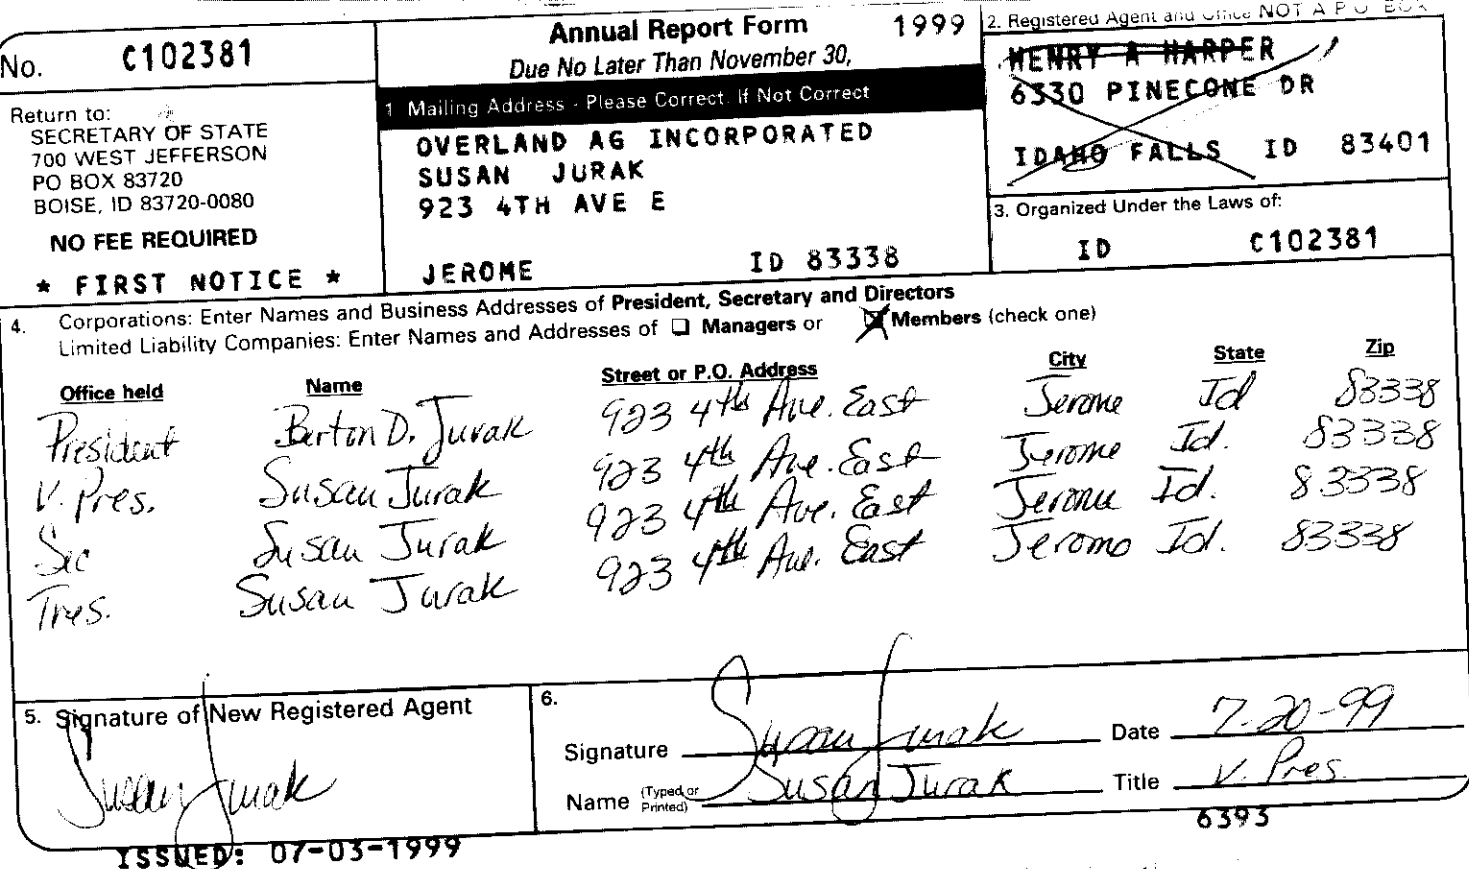 No. C102381
Return to:
SECRETARY OF STATE
700 WEST JEFFERSON
PO BOX 83720
BOISE, ID 83720-0080
NO FEE REQUIRED
* FIRST NOTICE *
Annual Report Form 1999
Due No Later Than November 30,
1 Mailing Address - Please Correct If Not Correct
OVERLAND AG INCORPORATED
SUSAN JURAK
923 4TH AVE E
JEROME ID 83338
2. Registered Agent and Office NOT A P O BOX
HENRY A HARPER
6330 PINECONE DR
IDAHO FALLS ID 83401
3. Organized Under the Laws of:
ID C102381
4. Corporations: Enter Names and Business Addresses of President, Secretary and Directors
Limited Liability Companies: Enter Names and Addresses of Managers or Members (check one)
Office held Name Street or P.O. Address City State Zip
President Berton D. Jurak 923 4th Ave. East Jerome Id 83338
V. Pres. Susan Jurak 923 4th Ave. East Jerome Id. 83338
Sec Susan Jurak 923 4th Ave. East Jerome Id. 83338
Tres. Susan Jurak 923 4th Ave. East Jerome Id. 83338
5. Signature of New Registered Agent
Susan Jurak
6.
Signature Susan Jurak Date 7-20-99
Name (Typed or Printed) Susan Jurak Title V. Pres.
6393
ISSUED: 07-03-1999